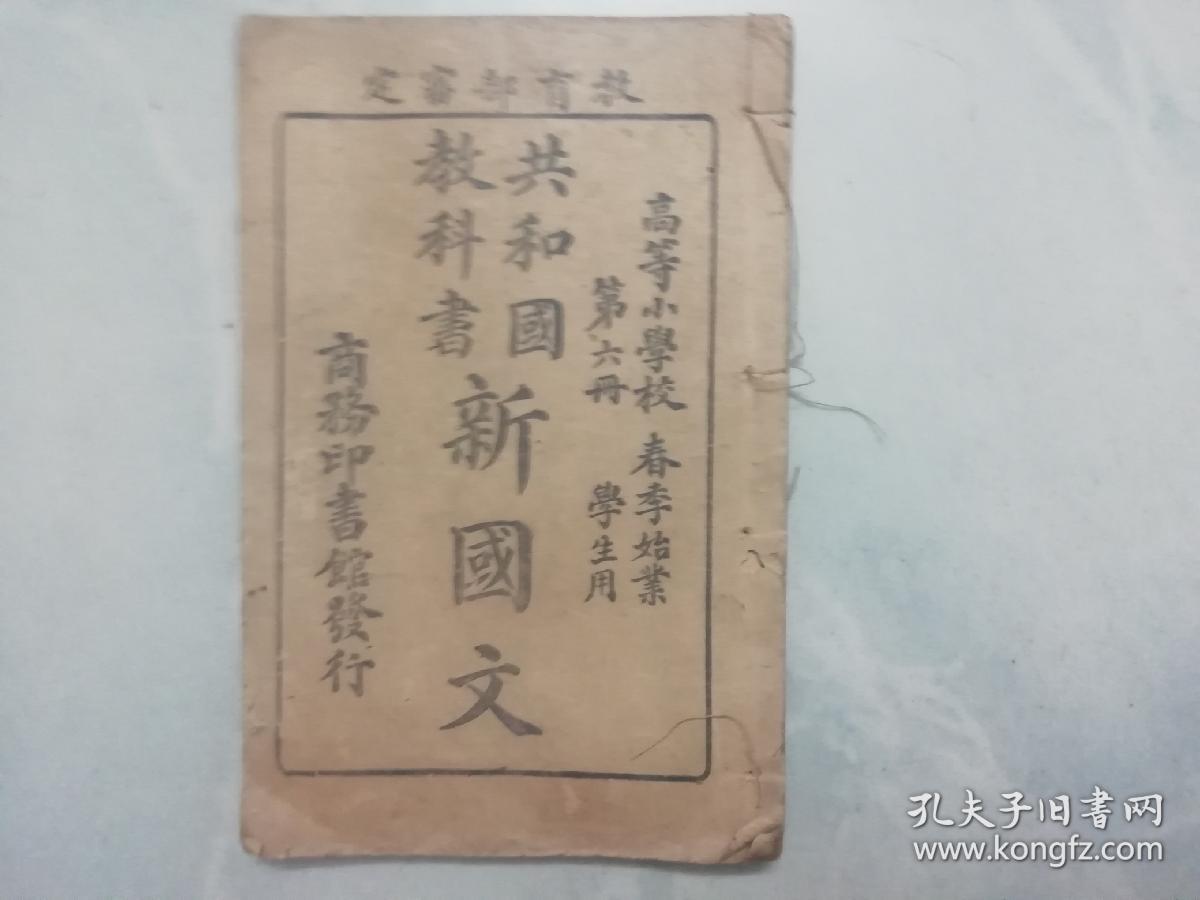 教育部審定
高等小學校 春季始業
第六冊 學生用
共和國
教科書
新國文
商務印書館發行
孔夫子旧书网
www.kongfz.com